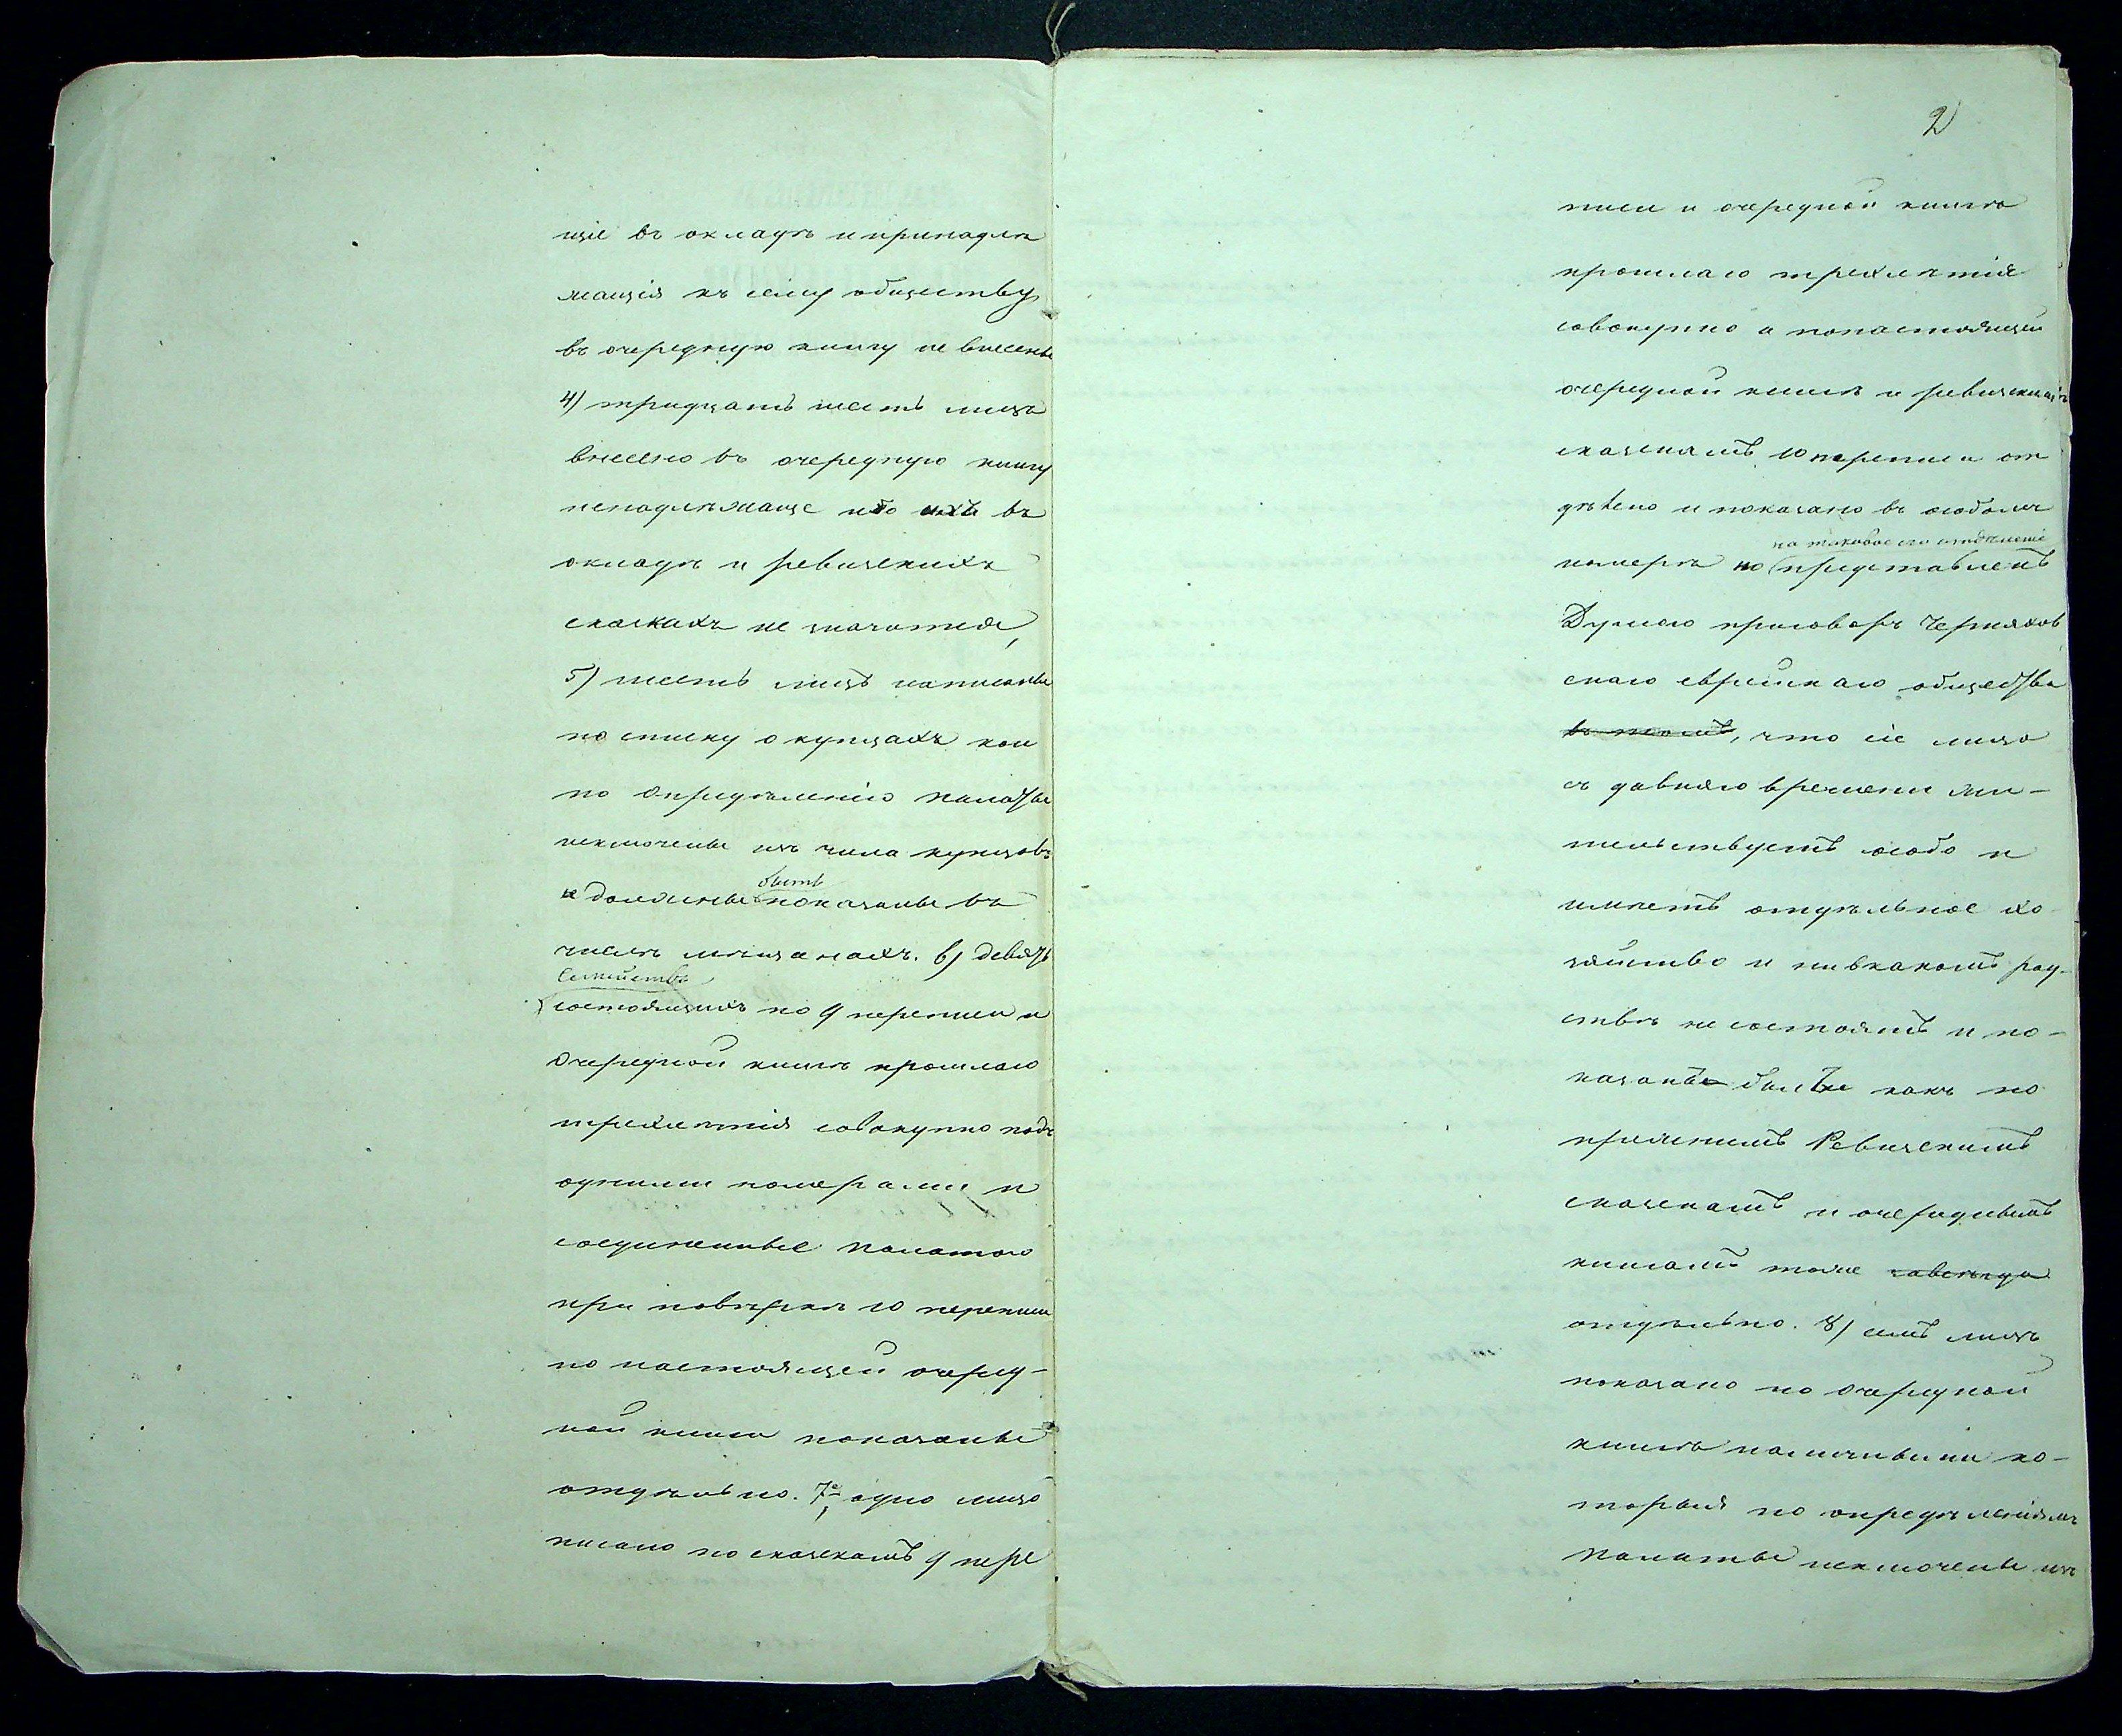 щіе въ окладѣ и принадле
жащія къ сему обществу
въ очередную книгу не внесены
4) тридцать шесть лицъ
внесено въ очередную книгу
ненадлежаще ибо ихъ въ
окладѣ и ревизскихъ
сказкахъ не значится,
5) шесть лицъ написаны
по списку о купцахъ кои
по опредѣленію палаты
исключены изъ числа купцовъ
и должны быть показаны въ
числѣ мѣщанахъ. 6) девять
семействъ
состоящихъ по 9 переписи и
очередной книгѣ прошлаго
трехлетія совокупно подъ
одними номерами и
соединенные палатою
при повѣркѣ 10 переписи
по настоящей очеред-
ной книги показаны
отдѣльно. 7е, одно лицо
писано по сказкамъ 9 пере
2
писи и очередной книгѣ
прошлаго трехлетія
совокупно а понастоящей
очередной книгѣ и ревизскимъ
сказкамъ 10 переписи от
дѣлено и показано въ особомъ
на таковое его отдѣленіе
номерѣ но представленъ
Думою приговоръ Черняхов
скаго еврейскаго общества
въ томъ, что сіе лицо
съ давняго времени жи-
тельствуетъ особо и
имѣетъ отдѣльное хо
зяйство и нивкакомъ род-
ствѣ не состоятъ и по-
казанъ былъ какъ по
прежнимъ Ревизскимъ
сказкамъ и очереднымъ
книгамъ тоже
отдѣльно. 8) семь лицъ
показано по очередной
книгѣ наличными ко-
торыя по опредѣленіямъ
палаты исключены изъ